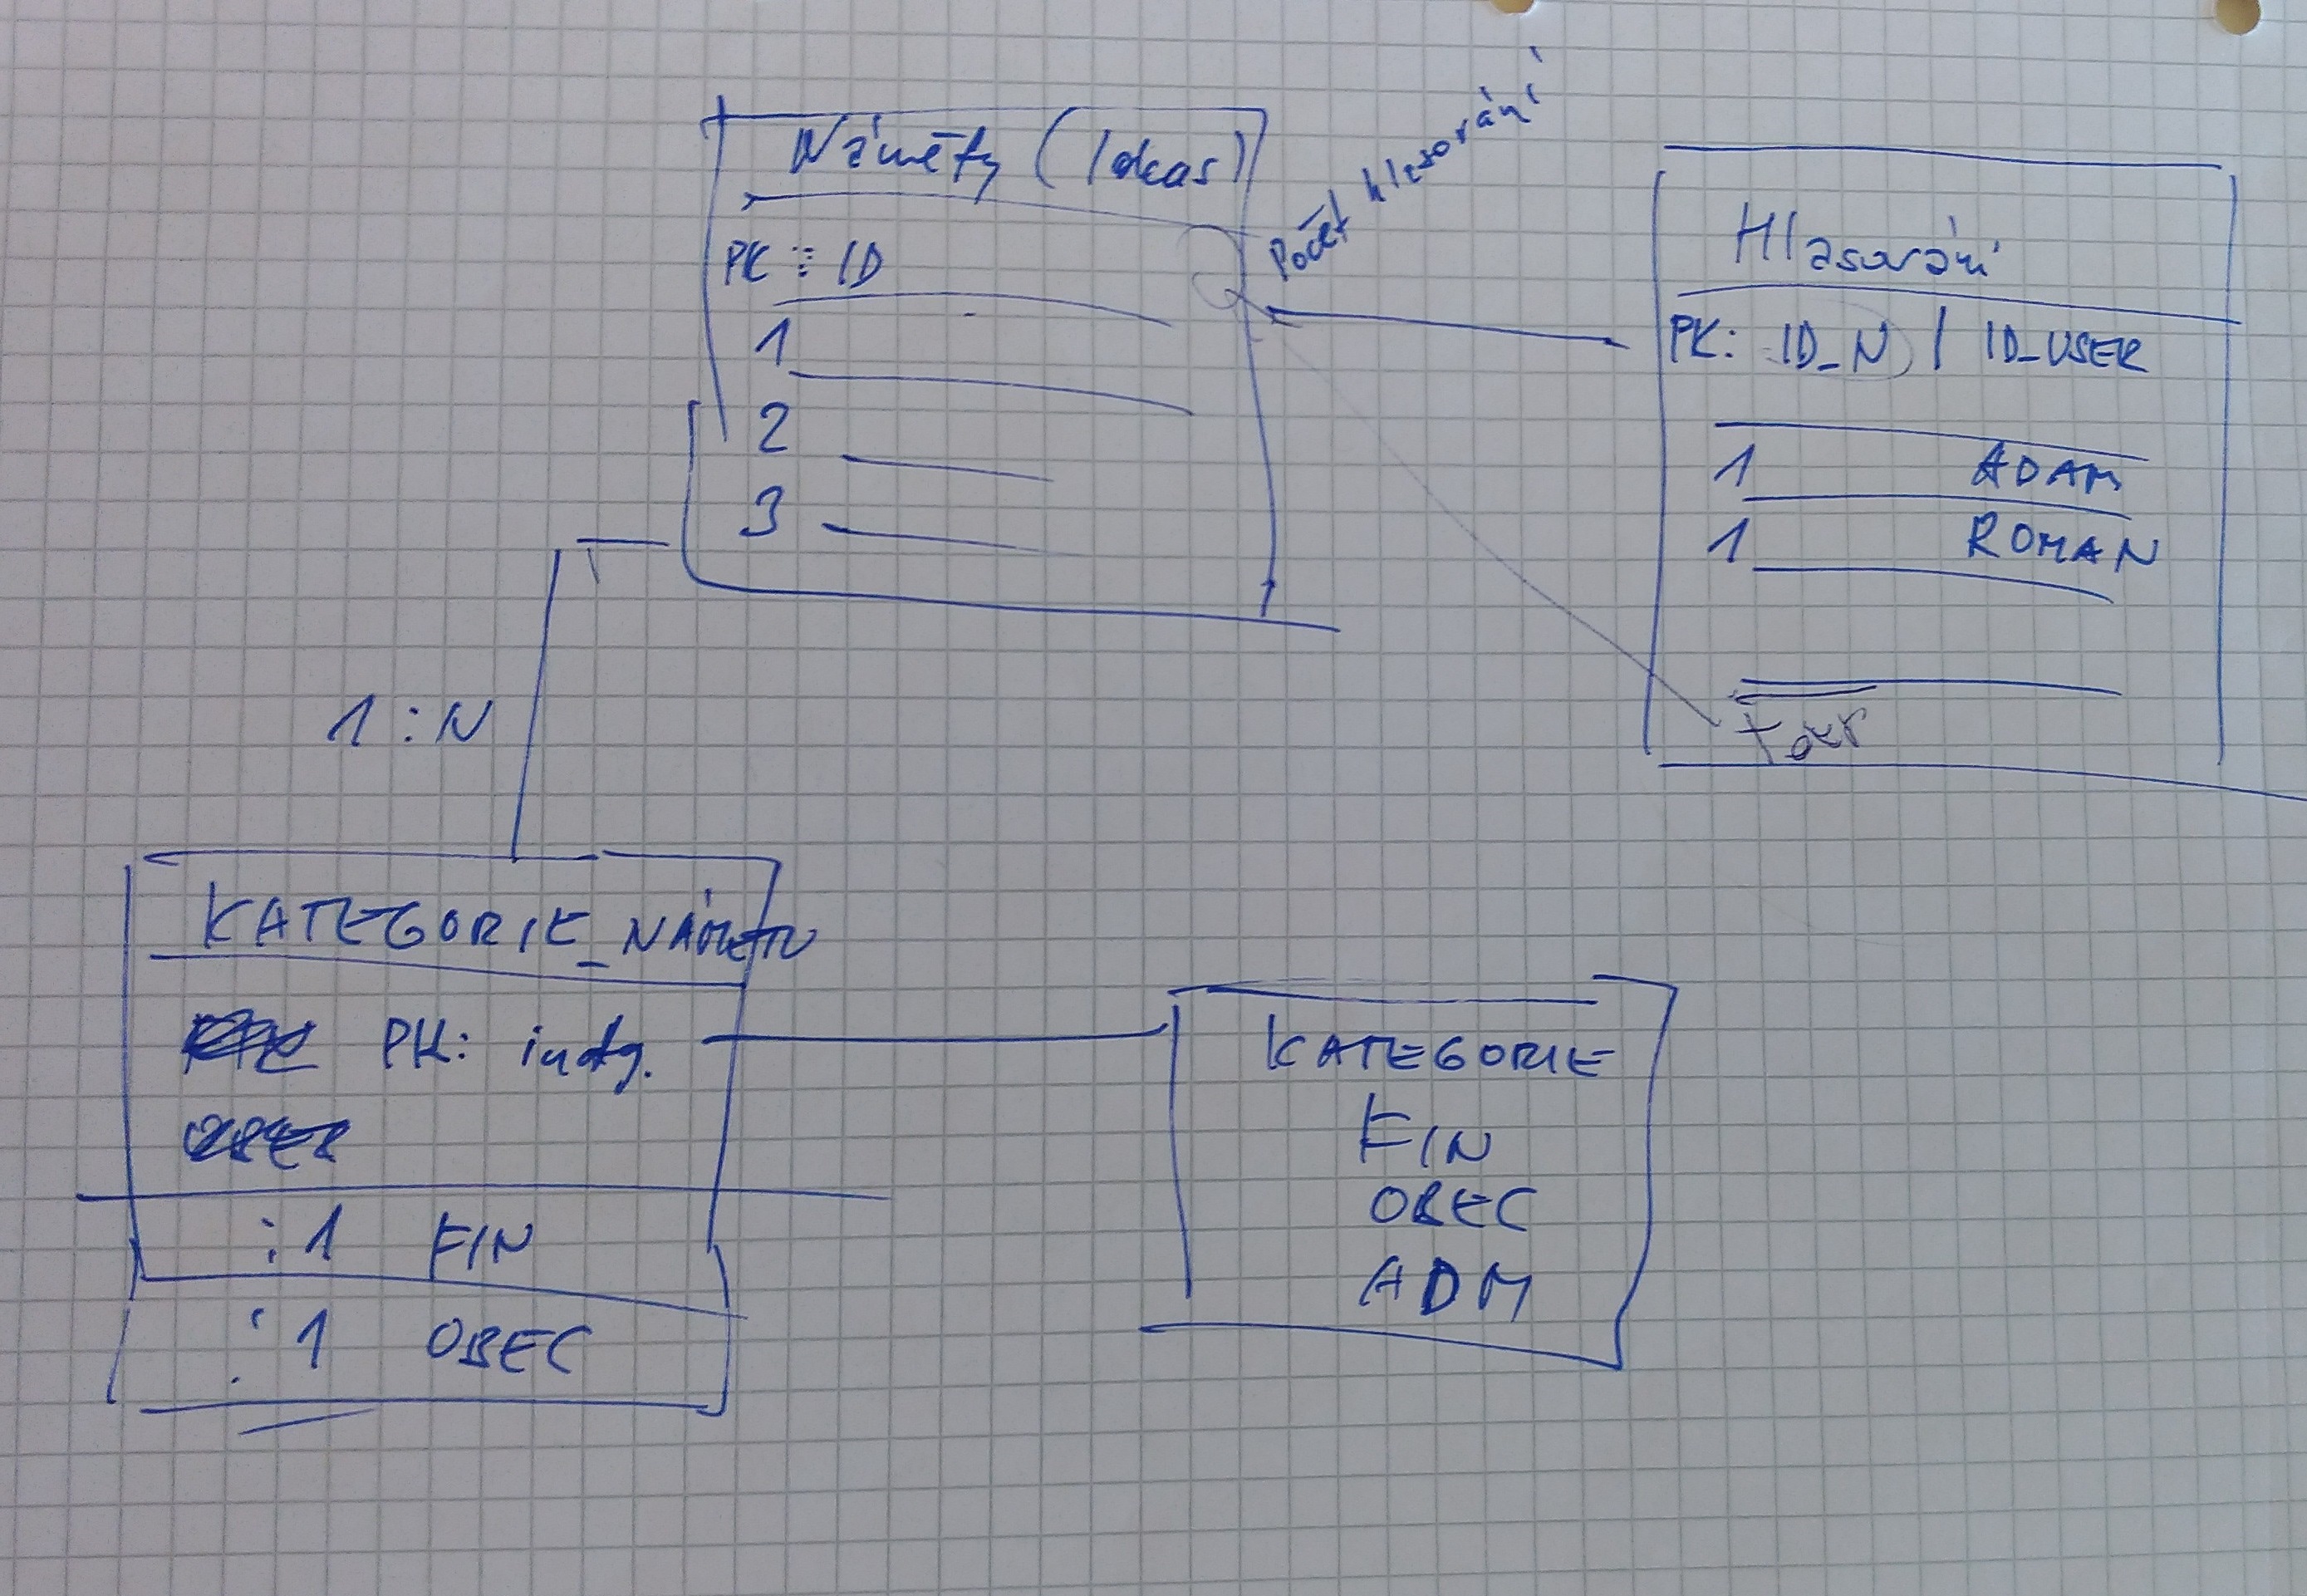 Náměty (Ideas)
PK : ID
1
2
3
Počet hlasování
Hlasování
PK: ID_N | ID_USER
1 ADAM
1 ROMAN
1 : N
KATEGORIE_NÁMĚTU
PK:
: 1 FIN
: 1 OBEC
KATEGORIE
FIN
OBEC
ADM